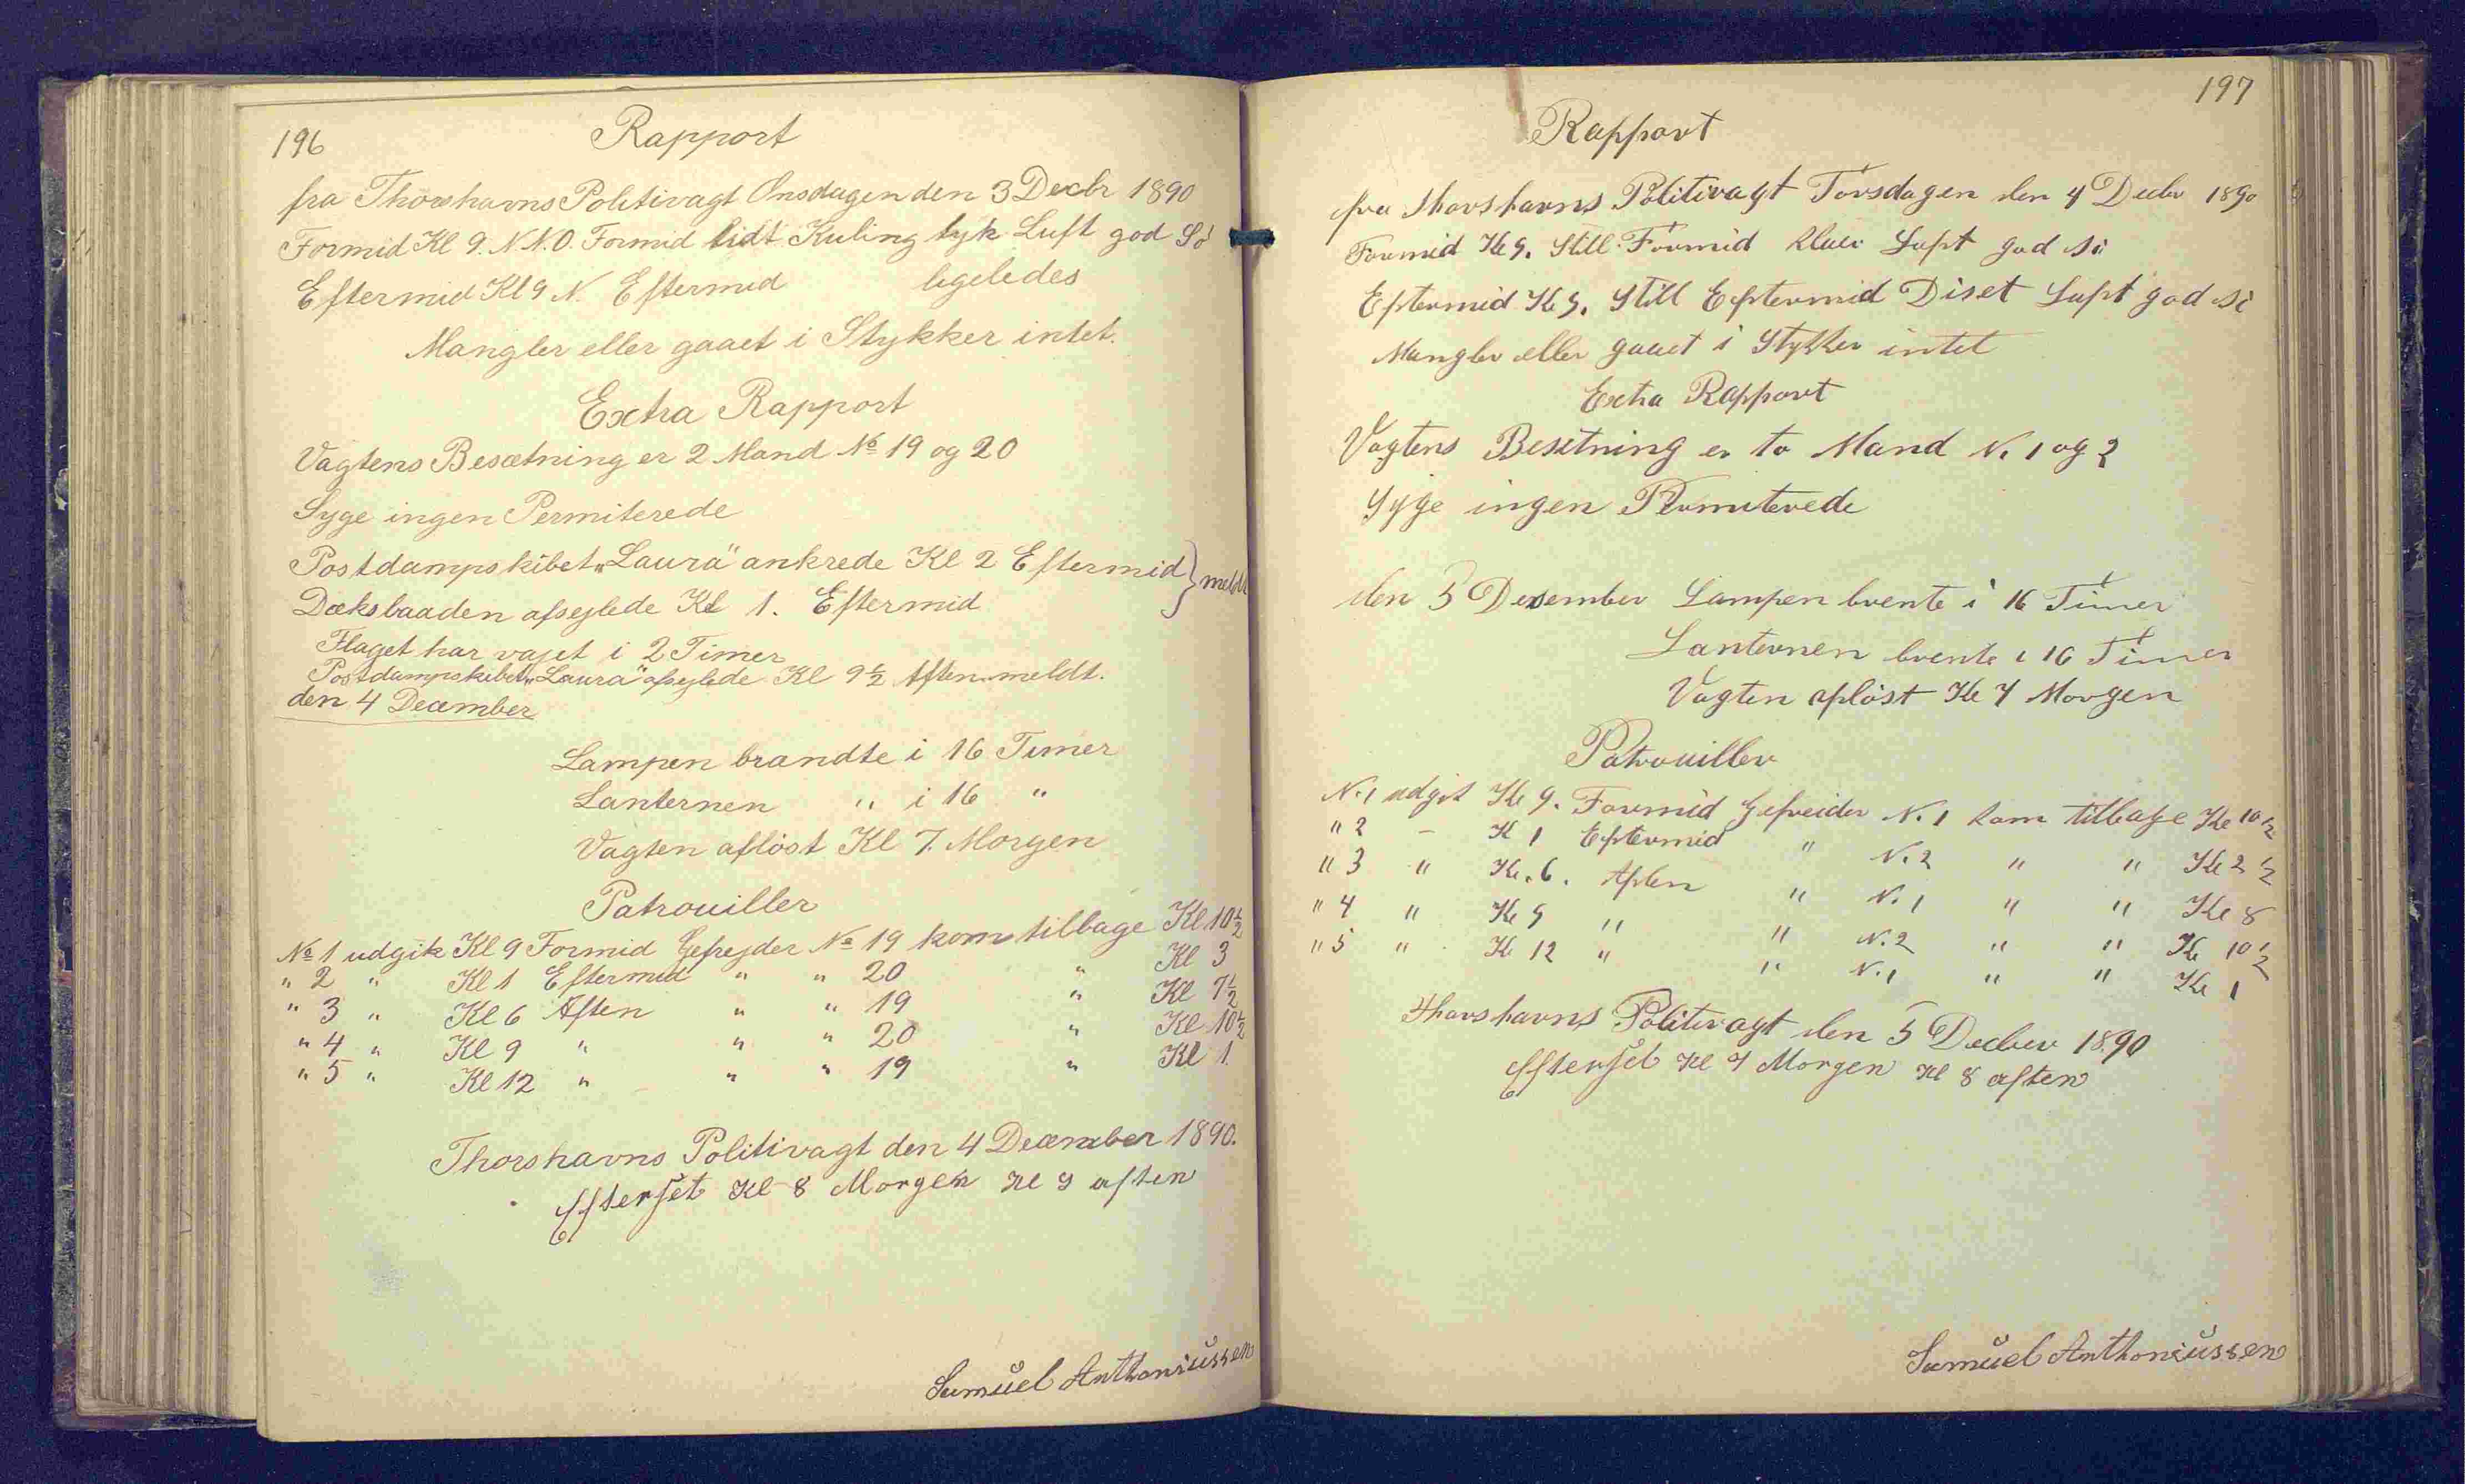 196
Rapport
fra Thorshavns Politivagt Onsdagen den 3 Decbr 1890
Formid Kl 9. N.N.O. Formid lidt Kuling tyk Luft god Sö
Eftermid Kl 9 N. Eftermid ligeledes
Mangler eller gaaet i Stykker intet.
Extra Rapport
Vagtens Besætning er 2 Mand No 19 og 20
Syge ingen Permiterede
Postdampskibet „Laura" ankrede Kl 2 Eftermid } meldt
Dæksbaaden afsejlede Kl 1. Eftermid
Flaget har vajet i 2 Timer
Postdampskibet „Laura" afsejlede Kl 9½ Aften meldt.
den 4 December
Lampen brandte i 16 Timer
Lanternen " i 16 "
Vagten aflöst Kl 7. Morgen
Patrouiller
No 1 udgik Kl 9 Formid Gefrejder No 19 kom tilbage Kl 10½
" 2 " Kl 1 Eftermid " " 20 " Kl 3
" 3 " Kl 6 Aften " " 19 " Kl 7½
" 4 " Kl 9 " " " 20 " Kl 10½
" 5 " Kl 12 " " " 19 " Kl 1.
Thorshavns Politivagt den 4 December 1890.
Efterset Kl 8 Morgen Kl 9 aften
Samuel Anthoniussen
197
Rapport
fra Thorshavns Politivagt Torsdagen den 4 Decbr 1890
Formid Kl 9. Still Formid Klar Luft god Sö
Eftermid Kl 9. Still Eftermid Diset Luft god Sö
Mangler eller gaaet i Stykker intet
Extra Rapport
Vagtens Besetning er to Mand N. 1 og 2
Syge ingen Permiterede
den 5 Desember Lampen brente i 16 Timer
Lanternen brente i 16 Timer
Vagten aflöst Kl 7 Morgen
Patrouiller
N. 1 udgik Kl 9. Formid Gefreider N. 1 kom tilbage Kl 10½
" 2 – Kl 1 Eftermid " N. 2 " " Kl 2½
" 3 " Kl. 6. Aften " N. 1 " " Kl 8
" 4 " Kl 9 " " N. 2 " " Kl 10½
" 5 " Kl 12 " " N. 1 " " Kl 1
Thorshavns Politivagt den 5 Decber 1890
Efterset Kl 7 Morgen Kl 8 aften
Samuel Anthoniussen